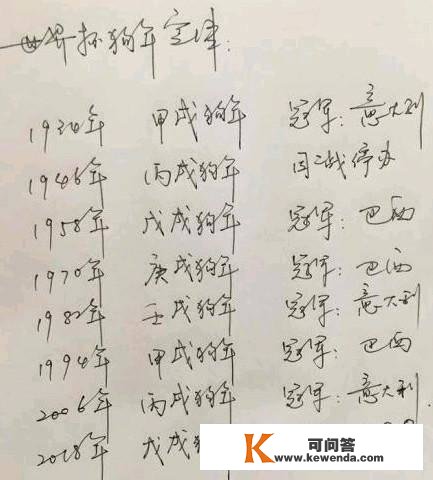 世界杯狗年定律:
1934年 甲戌狗年 冠军: 意大利
1946年 丙戌狗年 因二战停办
1958年 戊戌狗年 冠军: 巴西
1970年 庚戌狗年 冠军: 巴西
1982年 壬戌狗年 冠军: 意大利
1994年 甲戌狗年 冠军: 巴西
2006年 丙戌狗年 冠军: 意大利.
2018年 戊戌狗
K 可问答
www.kewenda.com